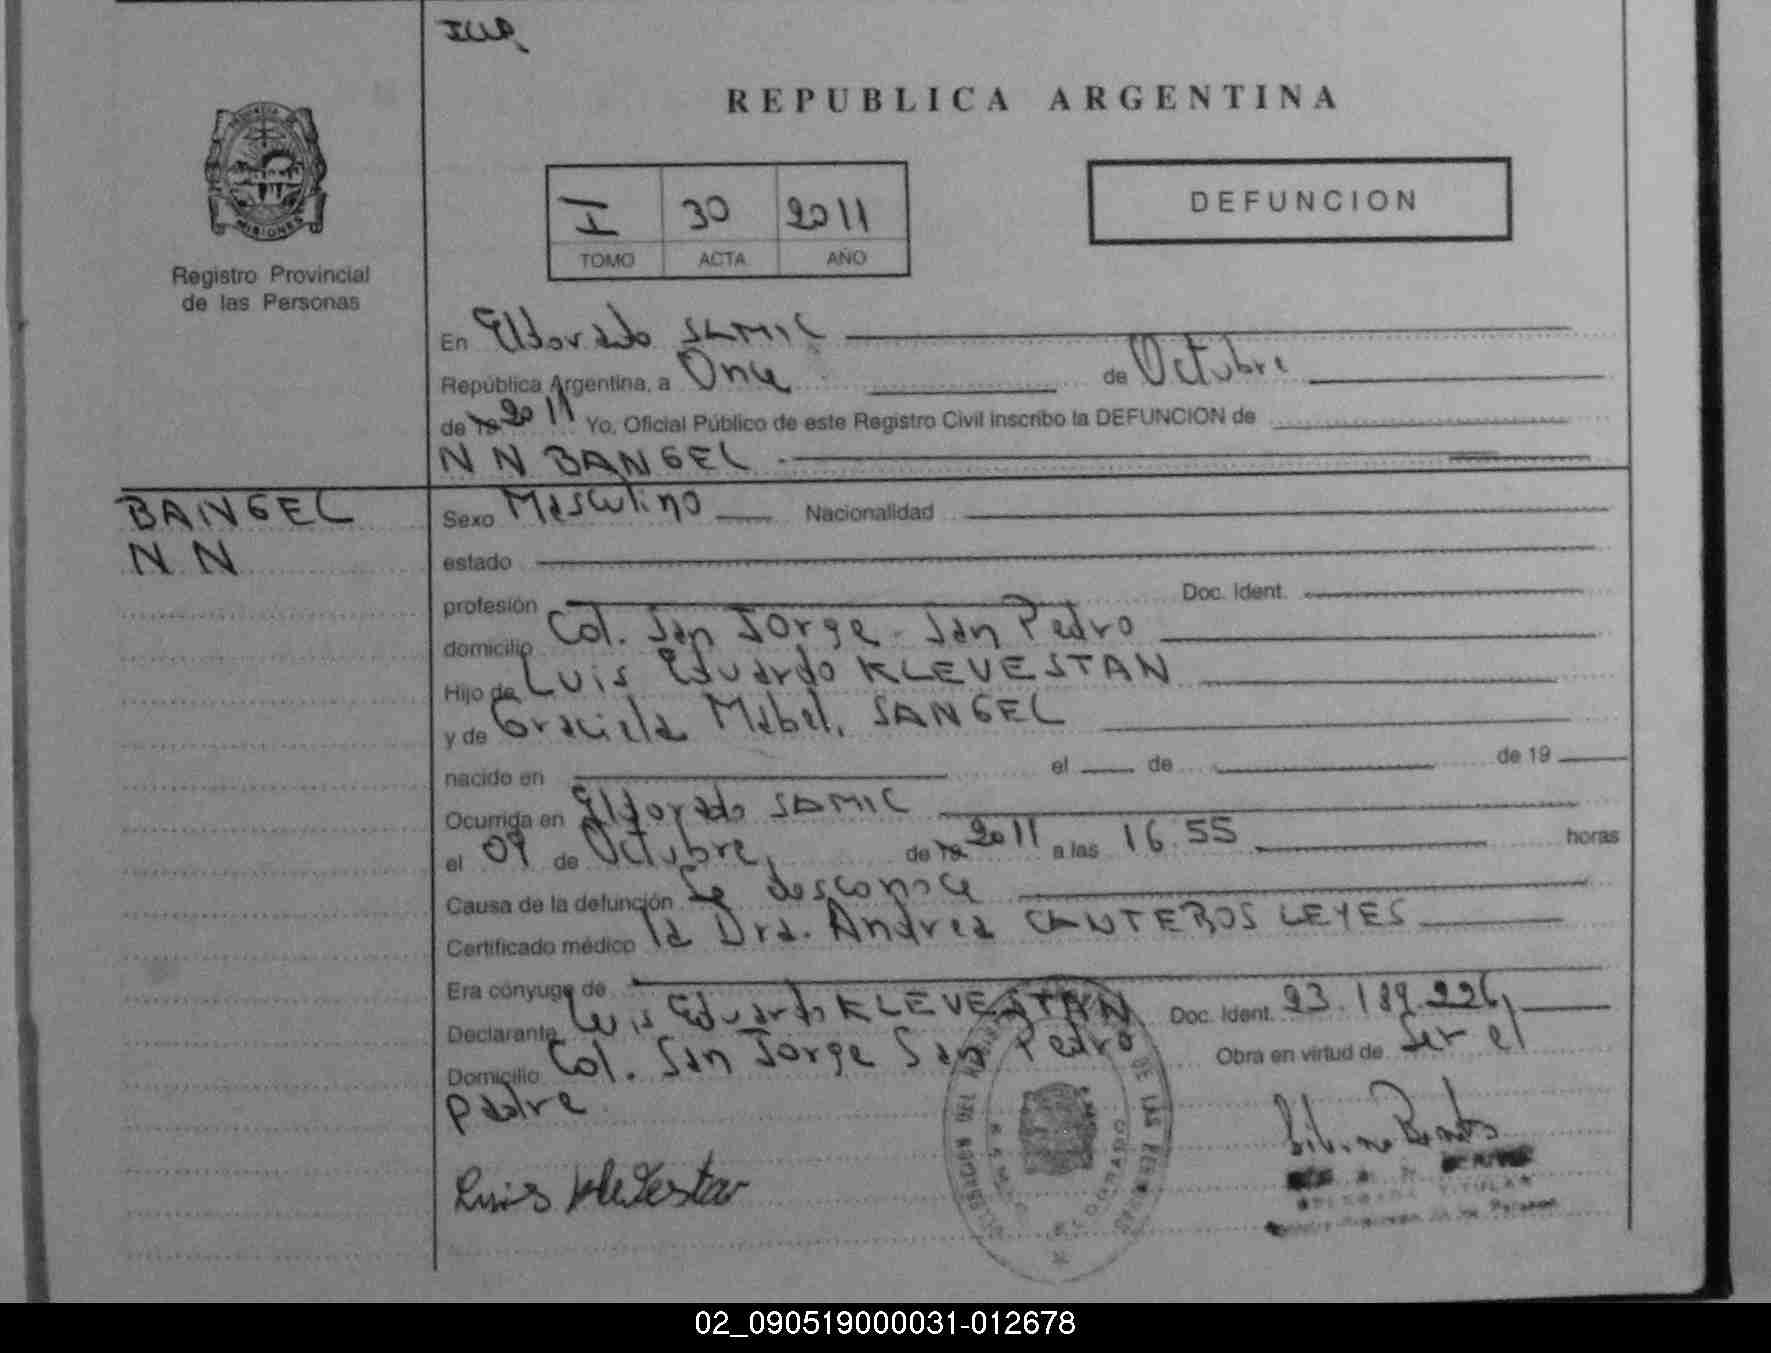 REPUBLICA ARGENTINA
MISIONES
Registro Provincial
de las Personas
I 30 2011
TOMO ACTA AÑO
DEFUNCION
En Eldorado SAMIC
República Argentina, a Once de Octubre
de 19 2011 Yo, Oficial Público de este Registro Civil inscribo la DEFUNCION de
N N BANGEL
BANGEL
N N
Sexo Masculino Nacionalidad
estado
profesión Doc. Ident.
domicilio Col. San Jorge - San Pedro
Hijo de Luis Eduardo KLEVESTAN
y de Graciela Mabel, SANGEL
nacido en el de de 19
Ocurrida en Eldorado SAMIC
el 09 de Octubre, de 19 2011 a las 16.55 horas
Causa de la defunción Se desconoce
Certificado médico la Dra. Andrea CANTEROS LEYES
Era cónyuge de
Declarante Luis Eduardo KLEVESTAN Doc. Ident. 23.189.226,
Domicilio Col. San Jorge San Pedro Obra en virtud de Ser el
padre
Luis Klevestan
02_090519000031-012678